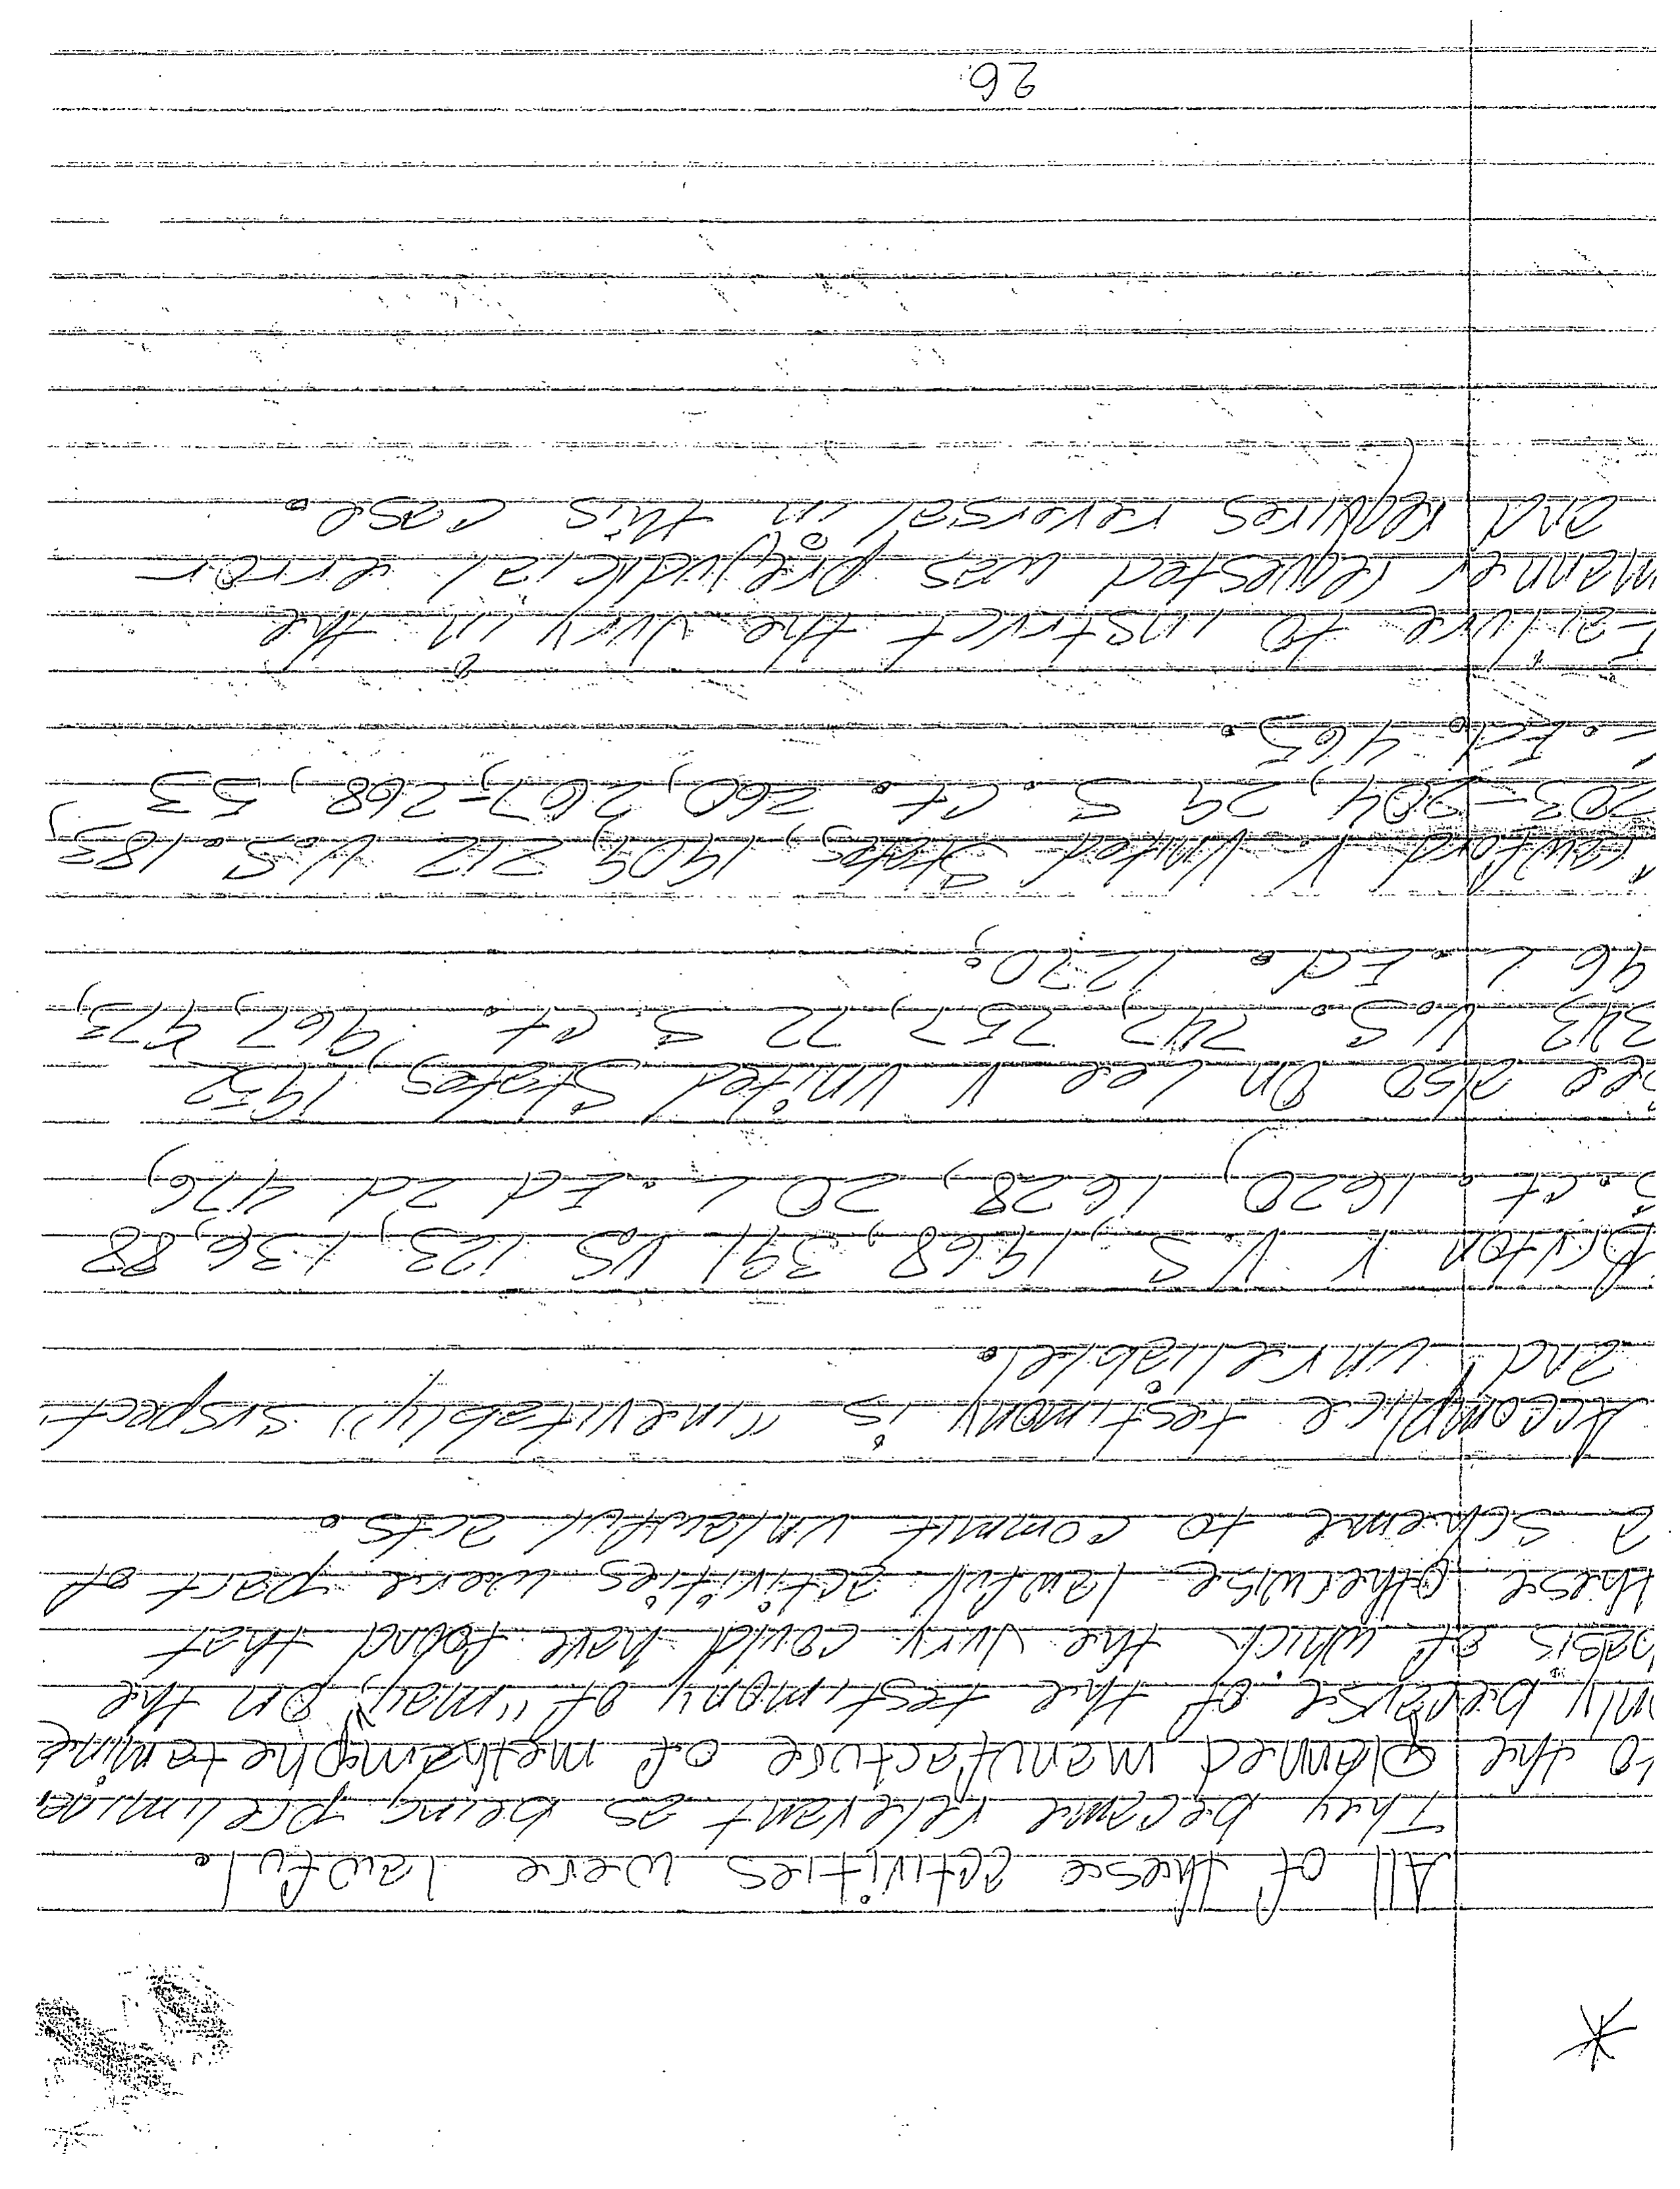 All of these activities were lawful.
They became relevant as being prelimina
to the planned manufacture of methamphetamine
only because of the testimony of "may," on the
basis of which the Jury could have found that
these otherwise lawful activities were part of
a scheme to commit unlawful acts.
Accomplice testimony is "inevitably" suspect
and unreliable.
Bruton V. U.S, 1968, 391 US 123, 136, 88
S.Ct. 1620, 1628, 20 L.Ed 2d 476,
see also On Lee V United States, 1952
343 U.S. 747, 757, 72 S Ct. 967, 973,
96 L.Ed. 1270;
Crawford V. United States, 1909, 212 U.S. 183,
203-204, 29 S.Ct. 260, 267-268, 53
L.Ed. 465.
Failure to instruct the Jury in the
manner requested was prejudicial error
and requires reversal in this case.
26.